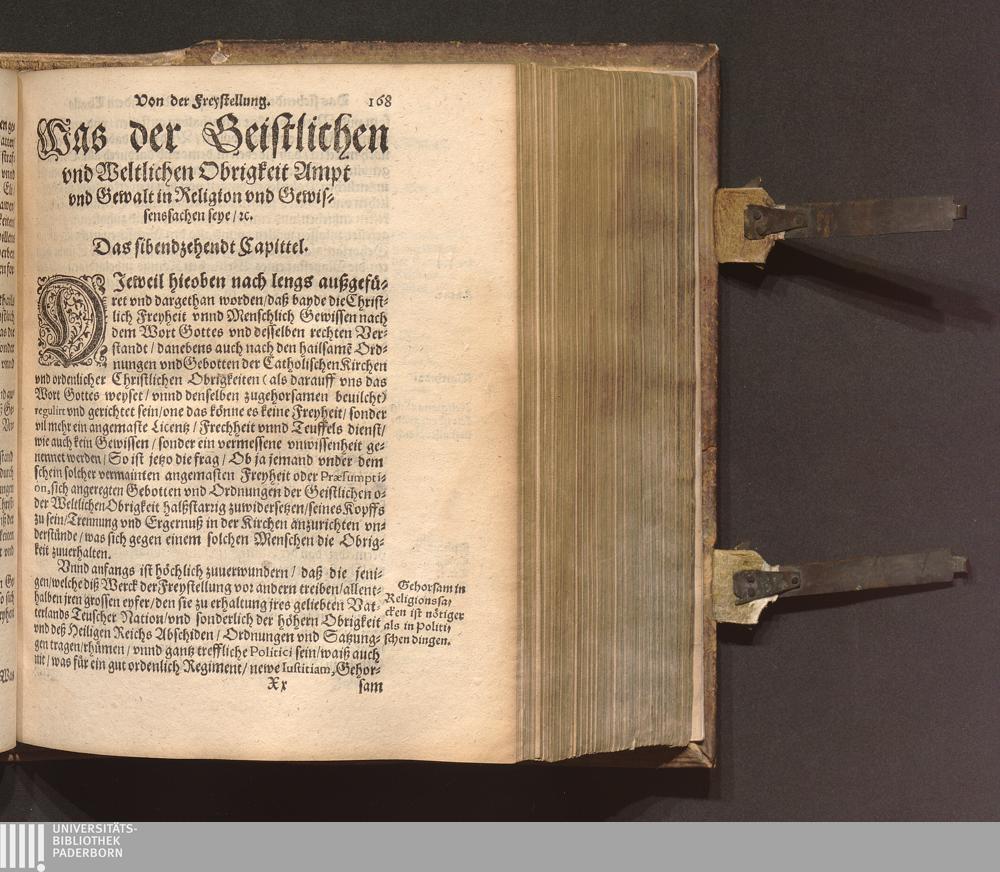 Von der Freystellung. 168
Was der Geistlichen
vnd Weltlichen Obrigkeit Ampt
vnd Gewalt in Religion vnd Gewis-
senssachen seye / ꝛc.
Das sibendzehendt Capittel.
DIeweil hieoben nach lengs außgefü-
ret vnd dargethan worden / daß bayde die Christ-
lich Freyheit vnnd Menschlich Gewissen nach
dem Wort Gottes vnd desselben rechten Ver-
standt / danebens auch nach den hailsamē Ord-
nungen vnd Gebotten der Catholischen Kirchen
vnd ordenlicher Christlichen Obrigkeiten ( als darauff vns das
Wort Gottes weyset / vnnd denselben zugehorsamen beuilcht)
regulirt vnd gerichtet sein / one das könne es keine Freyheit / sonder
vil mehr ein angemaste Licentz / Frechheit vnnd Teuffels dienst /
wie auch kein Gewissen / sonder ein vermessene vnwissenheit ge-
nennet werden / So ist jetzo die frag / Ob ja jemand vnder dem
schein solcher vermainten angemasten Freyheit oder Præsumpti-
on, sich angeregten Gebotten vnd Ordnungen der Geistlichen o-
der Weltlichen Obrigkeit halßstarzig zuwidersetzen / seines Kopffs
zu sein / Trennung vnd Ergernuß in der Kirchen anzurichten vn-
derstünde / was sich gegen einem solchen Menschen die Obrig-
keit zuuerhalten.
Vnnd anfangs ist höchlich zuuerwundern / daß die jeni-
gen / welche diß Werck der Freystellung vor andern treiben / allent-
halben jren grossen eyfer / den sie zu erhaltung jres geliebten Vat-
terlands Teuscher Nation / vnd sonderlich der höhern Obrigkeit
vnd deß Heiligen Reichs Abschiden / Ordnungen vnd Satzung-
gen tragen / rhümen / vnnd gantz treffliche Politici sein / waiß auch
nit / was für ein gut ordenlich Regiment / newe Iustitiam, Gehor-
Xx sam
Gehorsam in
Religionssa-
cken ist nötiger
als in Politi-
schen dingen.
UNIVERSITÄTS-
BIBLIOTHEK
PADERBORN